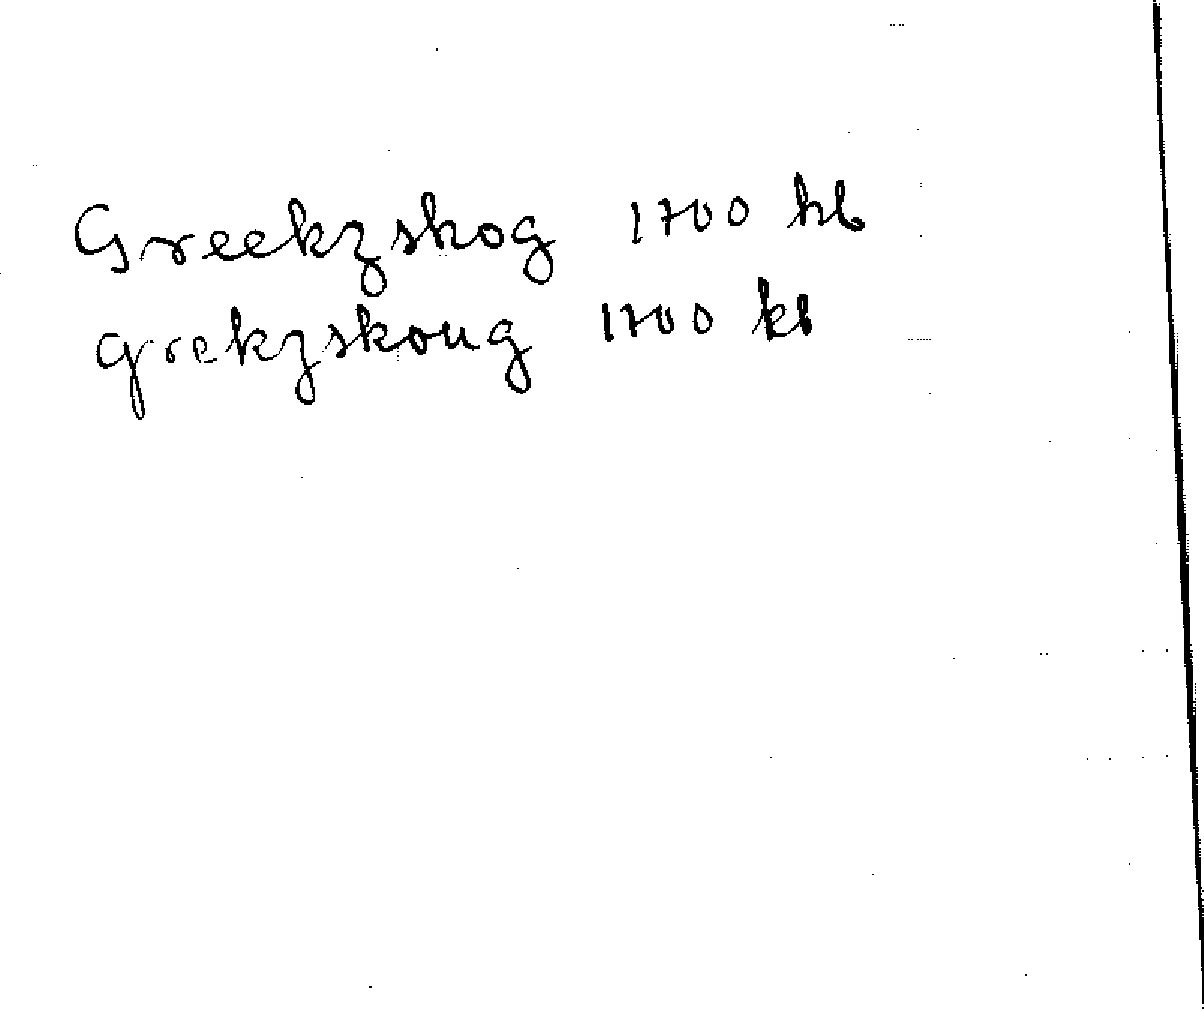 Greekzskog 1700 kb
grekzskoug 1700 kb